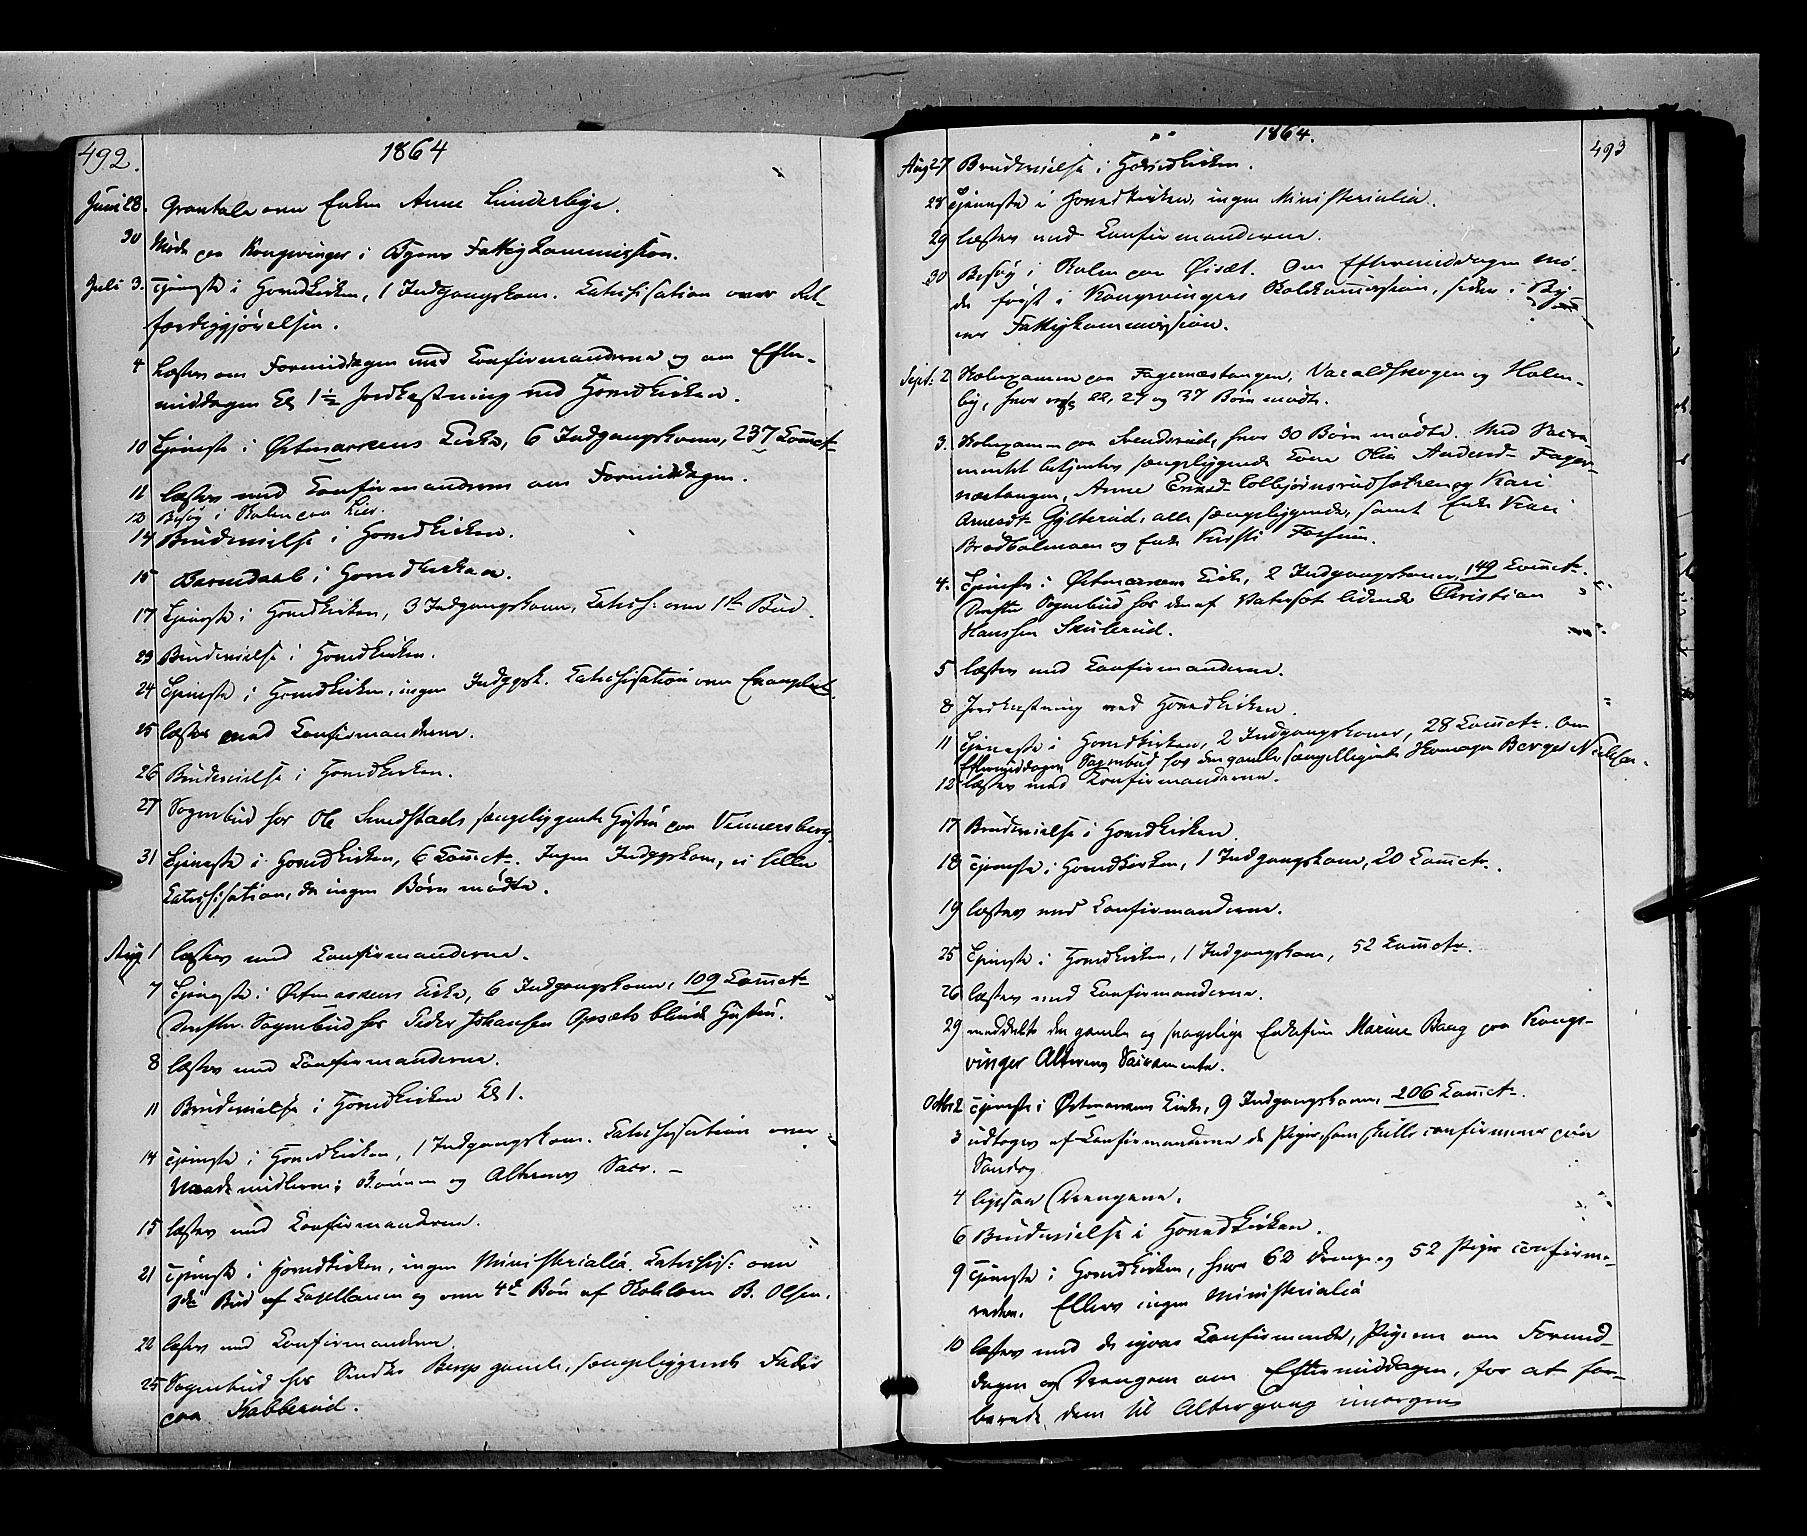 492.
1864
Juni 28. Gravtale over Enken Anne Linderbye.
30 Møde paa Kongsvinger i Byens Fattigkommission.
Juli 3. Tjeneste i Hovedkirken, 1 Indgangskone. Katechisation over Ret-
færdiggjørelsen.
4 læstes om Formiddagen med Confirmanderne og om Efter-
middagen Kl 1½ Jordkastning ved Hovedkirken.
10 Tjeneste i Østmarkens Kirke, 6 Indgangskoner, 237 Comctr.
11 læstes med Confirmanderne om Formiddagen.
12 Besøg i Skolen paa Lier.
14 Brudevielse i Hovedkirken.
15 Barnedaab i Hovedkirken.
17 Tjeneste i Hovedkirken, 3 Indgangskoner, Catech: over 1ste Bud.
23 Brudevielse i Hovedkirken.
24 Tjeneste i Hovedkirken, ingen Indggsk. Catechisation over Evangeliet.
25 læstes med Confirmanderne.
26 Brudevielse i Hovedkirken.
27 Sognebud hos Ole Smedstads sengeliggende Hustru paa Vennersberg.
31 Tjeneste i Hovedkirken, 6 Comctr. Ingen Indggskone, ei heller
Catechisation, da ingen Børn mødte.
Aug 1 læstes med Confirmanderne.
7 Tjeneste i Østmarkens Kirke, 6 Indgangskoner, 109 Comctr
Derefter Sognebud hos Peder Johansen Opsets blinde Hustru.
8 læstes med Confirmanderne.
11 Brudevielse i Hovedkirken Kl 1.
14 Tjeneste i Hovedkirken, 1 Indgangskone. Catechisation over
Naademidlerne; Bønnen og Alterens Sacr. –
15 læstes med Confirmanderne.
21 Tjeneste i Hovedkirken, ingen Ministerialia. Catechis: over
Bud af Capellanen og over 4de Bøn af Skolelærer B. Olsen.
22 læstes med Confirmanderne
25 Sognebud hos Bergs gamle, sengeliggende Fader
paa Kabberud.
1864.
493
Aug 27 Brudevielse i Hovedkirken.
28 Tjeneste i Hovedkirken, ingen Ministerialia.
29 læstes med Confirmanderne.
30 Besøg i Skolen paa Øiset. Om Eftermiddagen Mø-
de først i Kongsvingers Skolekommission, siden i By-
ens Fattigkommission.
Sept: 2 Skoleexamen paa Fagernæstangen, Varaldskogen og Holm-
by, hvor resp 22, 27 og 37 Børn mødte.
3. Skoleexamen paa Svendsrud, hvor 30 Børn mødte. Med Sacra-
mentet betjentes sengeliggende Kone Olia Andersd. Fager-
næstangen, Anne Eriksd. Colbjørnsrudsætren og Kari
Arnesdtr Gylterud, alle sengeliggende, samt Enke Kari
Bredholmoen og Enke Kirsti Forsum.
4. Tjeneste i Østmarkens Kirke, 2 Indgangskoner, 149 Comctr.
Derefter Sognebud hos den af Vatersot lidende Christian
Hanssen Skulerud.
5 læstes med Confirmanderne.
8 Jordkastning ved Hovedkirken.
11 Tjeneste i Hovedkirken, 2 Indgangskoner, 28 Comctr. Om
Eftermiddagen Sognebud hos den gamle sengeliggende Skomager Berger Nielsen.
12 læstes med Konfirmanderne.
17 Brudevielse i Hovedkirken.
18 Tjeneste i Hovedkirken, 1 Indgangskone, 20 Comctr.
19 læstes med Confirmanderne.
25 Tjeneste i Hovedkirken, 1 Indgangskone, 52 Comctr.
26 læstes med Confirmanderne.
29 meddeltes den gamle og svagelige Enkefru Marine Baug paa Kongs-
vinger Alterens Sacramente.
Octbr 2 Tjeneste i Østmarkens Kirke, 9 Indgangskoner, 206 Comctr.
3 udtoges af Confirmanderne de Piger, som skulle confirmeres paa
Søndag
4 ligesaa Drengene.
6 Brudevielse i Hovedkirken.
9 Tjeneste i Hovedkirken, hvor 62 Drenge og 52 Piger confirme-
redes. Ellers ingen Ministerialia
10 læstes med de nyvos Confirmerede, Pigerne om Formid-
dagen og Drengene om Eftermiddagen, for at for-
berede dem til Altergang imorgen